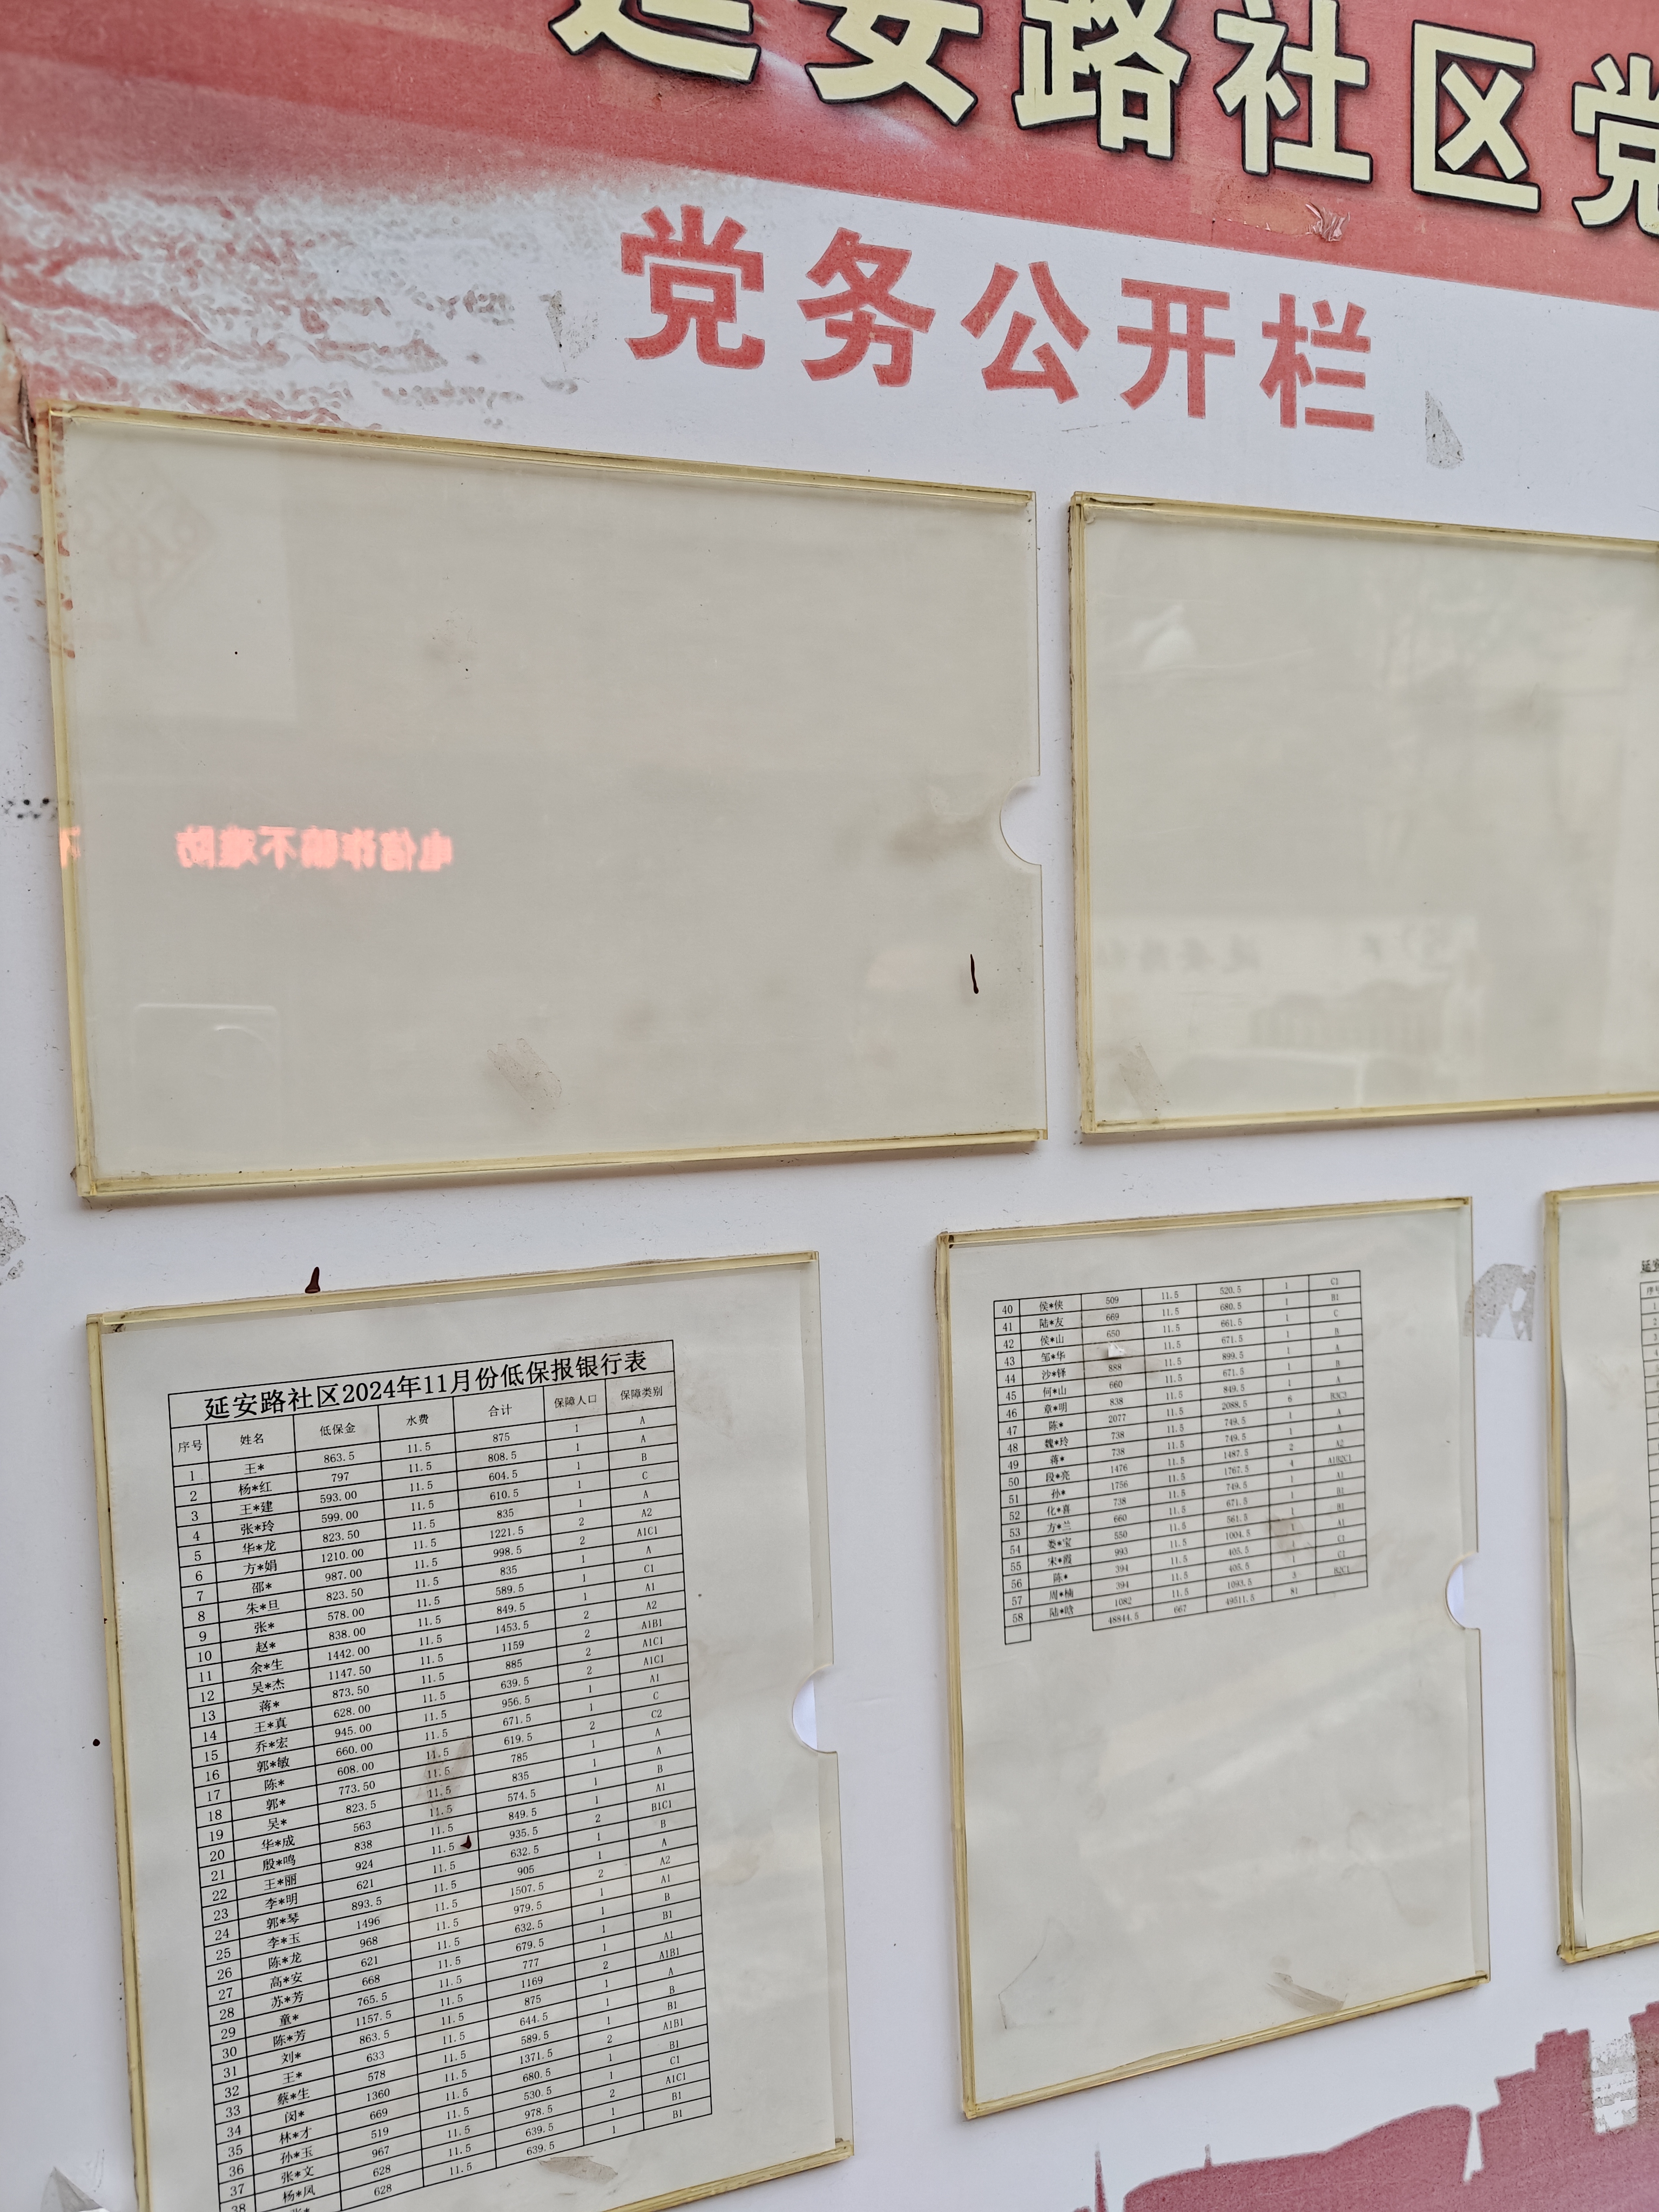 延安路社区党
党务公开栏
延安路社区2024年11月份低保报银行表
序号 姓名 低保金 水费 合计 保障人口 保障类别
1 王* 863.5 11.5 875 1 A
2 杨*红 797 11.5 808.5 1 A
3 王*建 593.00 11.5 604.5 1 B
4 张*玲 599.00 11.5 610.5 1 C
5 华*龙 823.50 11.5 835 1 A
6 方*娟 1210.00 11.5 1221.5 2 A2
7 邵* 987.00 11.5 998.5 2 A1C1
8 朱*旦 823.50 11.5 835 1 A
9 张* 578.00 11.5 589.5 1 C1
10 赵* 838.00 11.5 849.5 1 A1
11 余*生 1442.00 11.5 1453.5 2 A2
12 吴*杰 1147.50 11.5 1159 2 A1B1
13 蒋* 873.50 11.5 885 2 A1C1
14 王*真 628.00 11.5 639.5 2 A1C1
15 乔*宏 945.00 11.5 956.5 1 A1
16 郭*敏 660.00 11.5 671.5 1 C
17 陈* 608.00 11.5 619.5 2 C2
18 郭* 773.50 11.5 785 1 A
19 吴* 823.5 11.5 835 1 A
20 华*成 563 11.5 574.5 1 B
21 殷*鸣 838 11.5 849.5 1 A1
22 王*丽 924 11.5 935.5 2 B1C1
23 李*明 621 11.5 632.5 1 B
24 郭*琴 893.5 11.5 905 1 A
25 李*玉 1496 11.5 1507.5 2 A2
26 陈*龙 968 11.5 979.5 1 A1
27 高*安 621 11.5 632.5 1 B
28 苏*芳 668 11.5 679.5 1 B1
29 童* 765.5 11.5 777 1 A1
30 陈*芳 1157.5 11.5 1169 2 A1B1
31 刘* 863.5 11.5 875 1 A
32 王* 633 11.5 644.5 1 B
33 蔡*生 578 11.5 589.5 1 B1
34 闵* 1360 11.5 1371.5 2 A1B1
35 林*才 669 11.5 680.5 1 B1
36 孙*玉 519 11.5 530.5 1 C1
37 张*文 967 11.5 978.5 2 A1C1
38 杨*凤 628 11.5 639.5 1 B1
628 11.5 639.5 1 B1
40 侯*侠 509 11.5 520.5 1 C1
41 陆*友 669 11.5 680.5 1 B1
42 侯*山 650 11.5 661.5 1 C
43 邹*华 11.5 671.5 1 B
44 沙*铎 888 11.5 899.5 1 A
45 何*山 660 11.5 671.5 1 B
46 章*明 838 11.5 849.5 1 A
47 陈* 2077 11.5 2088.5 6 B3C3
48 魏*玲 738 11.5 749.5 1 A
49 蒋* 738 11.5 749.5 1 A
50 段*亮 1476 11.5 1487.5 2 A2
51 孙* 1756 11.5 1767.5 4 A1B2C1
52 化*喜 738 11.5 749.5 1 A1
53 方*兰 660 11.5 671.5 1 B1
54 娄*宝 550 11.5 561.5 1 B1
55 宋*霞 993 11.5 1004.5 1 A1
56 陈* 394 11.5 405.5 1 C1
57 周*楠 394 11.5 405.5 1 C1
58 陆*晗 1082 11.5 1093.5 3 B2C1
48844.5 667 49511.5 81